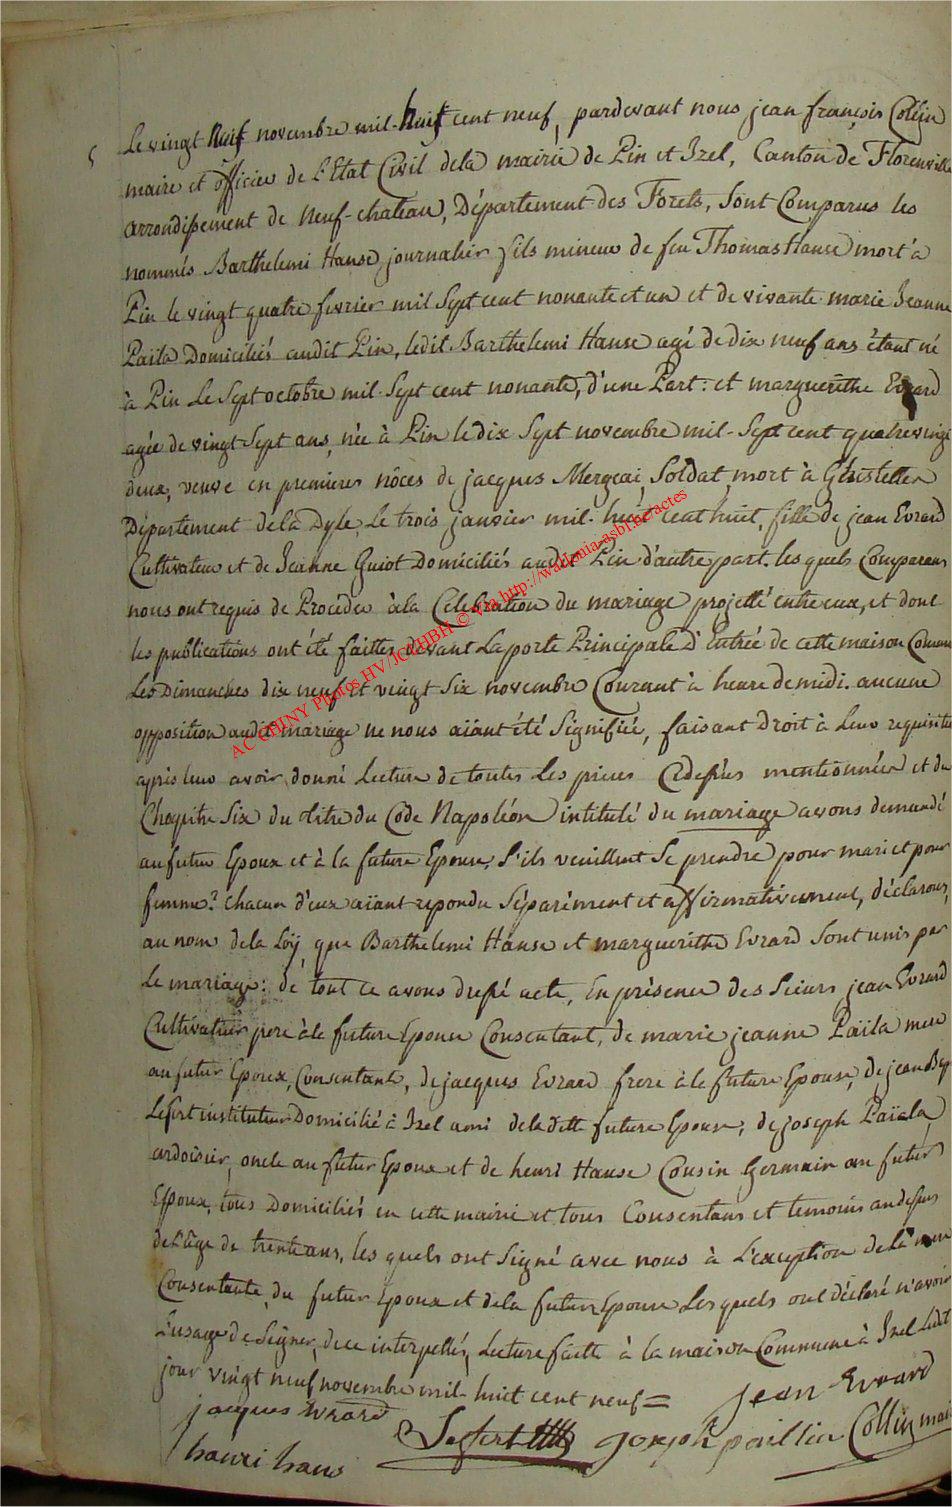 5
Le vingt Neuf novembre mil-huit cent neuf, pardevant nous jean françois Collin
maire et officier de L'Etat Civil dela mairie de Pin et Izel, Canton de Florenville
arrondissement de Neuf-chateau, Département des Forets, Sont Comparus les
nommés Barthelemi Hanse journalier fils mineur de feu Thomas Hanse mort à
Pin le vingt quatre fevrier mil Sept cent nonante et un et de vivante marie Jeanne
Païla Domiciliés audit Pin, ledit Barthelemi Hanse agé de dix neuf ans étant né
à Pin Le Sept octobre mil-Sept cent nonante, d'une Part: et marguerithe Evrard
agée de vingt Sept ans, née à Pin le dix Sept novembre mil-Sept cent quatrevingt
deux, veuve en premieres nôces de jacques Mergeai Soldat mort à Ghistellen
Département de la Dyle, Le trois janvier mil-huit cent huit, fille de jean Evrard
Cultivateur et de Jeanne Guiot Domiciliés audit Pin d'autre part. les quels Comparans
nous ont requis de Proceder à la Celebration du mariage projetté entre eux, et dont
les publications ont été faittes devant La porte Principale D'Entrée de cette maison Commune
Les Dimanches dix neuf et vingt Six novembre Courant à heure de midi. aucune
opposition audit mariage ne nous aïant été Signifiée, faisant Droit à Leur requisition
après leur avoir donné Lecture de toutes Les pieces Cidessus mentionnées et du
Chapitre Six du titre du Code Napoléon intitulé du mariage avons demandé
au futur Epoux et à la future Epouse, S'ils veuillent Se prendre pour mari et pour
femme? chacun d'eux aïant repondu Séparément et affirmativement, déclarons,
au nom de la Loÿ, que Barthelemi Hanse et marguerithe Evrard Sont unis par
Le mariage: de tout ce avons dressé acte, En présence des Sieurs jean Evrard
Cultivateur pere à le future Epouse Consentant, de marie jeanne Païla mere
au futur Epoux, Consentante, de jacques Evrard frere à le future Epouse, de jean Bap
Lefert instituteur Domicilié à Izel ami de ladite future Epouse, de joseph Païala
ardoisier, oncle au futur Epoux et de henri Hanse Cousin Germain au futur
Epoux, tous Domiciliés en cette mairie et tous Consentans et temoins audessus
de L'âge de trente ans, les quels ont Signé avec nous à L'exception de la mere
Consentante du futur Epoux et de la future Epouse Lesquels ont déclaré n'avoir
L'usage de Signer, de ce interpellés, Lecture faitte à la maison Commune à Izel Ledit
jour vingt neuf novembre mil huit cent neuf =
jean Evrard
jacques Evrard
Lefert
joseph paillia
Collin mai
hanri hans
AC CHINY Photos HV/JCI/HBH © via http://wallonia-asbl.be/actes